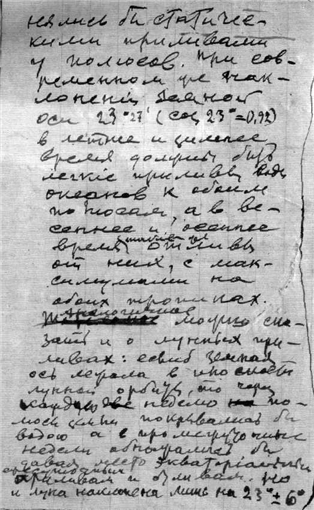 нялись бы статиче-
скими приливами
у полюсов. При сов-
ременном же нак-
лоненiи земной
оси 23°27' (cos 23°=0,92)
в летнее и зимнее
время должны быть
легкие приливы вод
океанов к обоим
полюсам, а в ве-
сеннее и осеннее
время отливы
от них, с мак-
симумами на
обоих тропиках.
Аналогичное можно ска-
зать и о лунных при-
ливах: если б земная
ось лежала в плоскости
лунной орбиты, то через
каждую неделю по-
люсы земли покрывались бы
водою а в промежуточные
недели обнажались бы
давая место экваториальным
приливам и отливам. Но
и луна наклонена лишь на 23°±6°